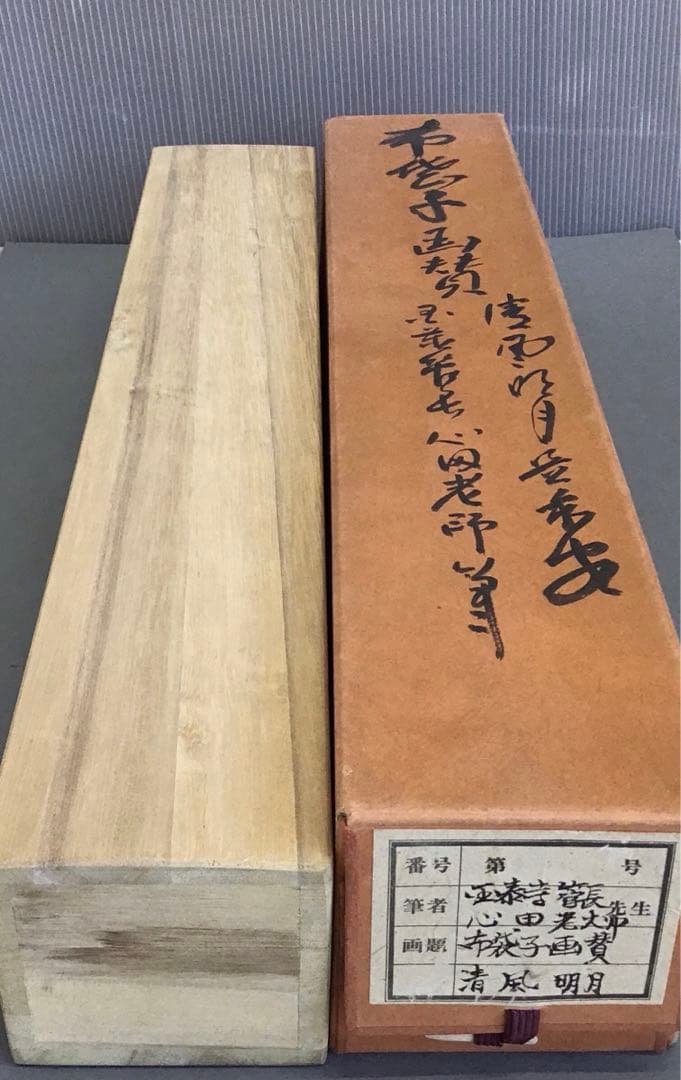 布袋子画賛
清風明月
国泰管長心田老師筆
番号 第 号
筆者 国泰寺管長
心田老大師 先生
画題 布袋子画賛
清風明月